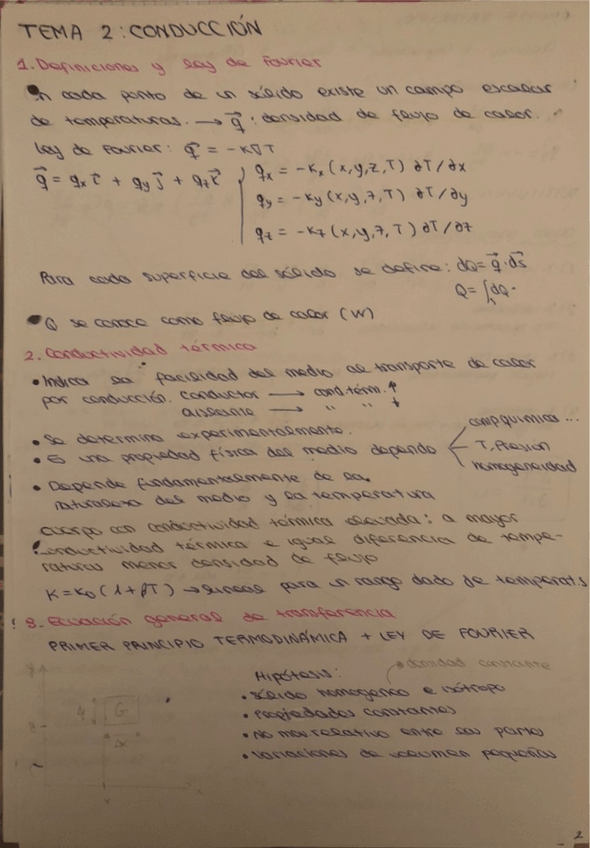 TEMA 2: CONDUCCIÓN
1. Definiciones y ley de Fourier
En cada punto de un sólido existe un campo escalar
de temperaturas. → q⃗ : densidad de flujo de calor.
Ley de Fourier: q⃗ = -K∇T
q⃗ = qx i⃗ + qy j⃗ + qz k⃗
qx = -Kx (x,y,z,T) ∂T/∂x
qy = -Ky (x,y,z,T) ∂T/∂y
qz = -Kz (x,y,z,T) ∂T/∂z
Para cada superficie del sólido se define: dQ = q⃗·ds⃗
Q = ∫ dQ·
• Q se conoce como flujo de calor (W)
2. Conductividad térmica
• Indica la facilidad del medio al transporte de calor
por conducción. Conductor → cond. térm. ↑
Aislante → " " ↓
• Se determina experimentalmente.
• Es una propiedad física del medio depende
comp química ...
T, Presion
homogeneidad
• Depende fundamentalmente de la
naturaleza del medio y la temperatura
Cuerpo con conductividad térmica elevada: a mayor
conductividad térmica e igual diferencia de tempe-
raturas menor densidad de flujo
K = K0 (1 + βT) → lineal para un rango dado de temperat.s
! 3. Ecuación general de transferencia
PRIMER PRINCIPIO TERMODINÁMICA + LEY DE FOURIER
Hipótesis:
densidad constante
• Sólido homogeneo e isótropo
• Propiedades constantes
• No mov relativo entre las partes
• Variaciones de volumen pequeñas
G
Δx
x
2